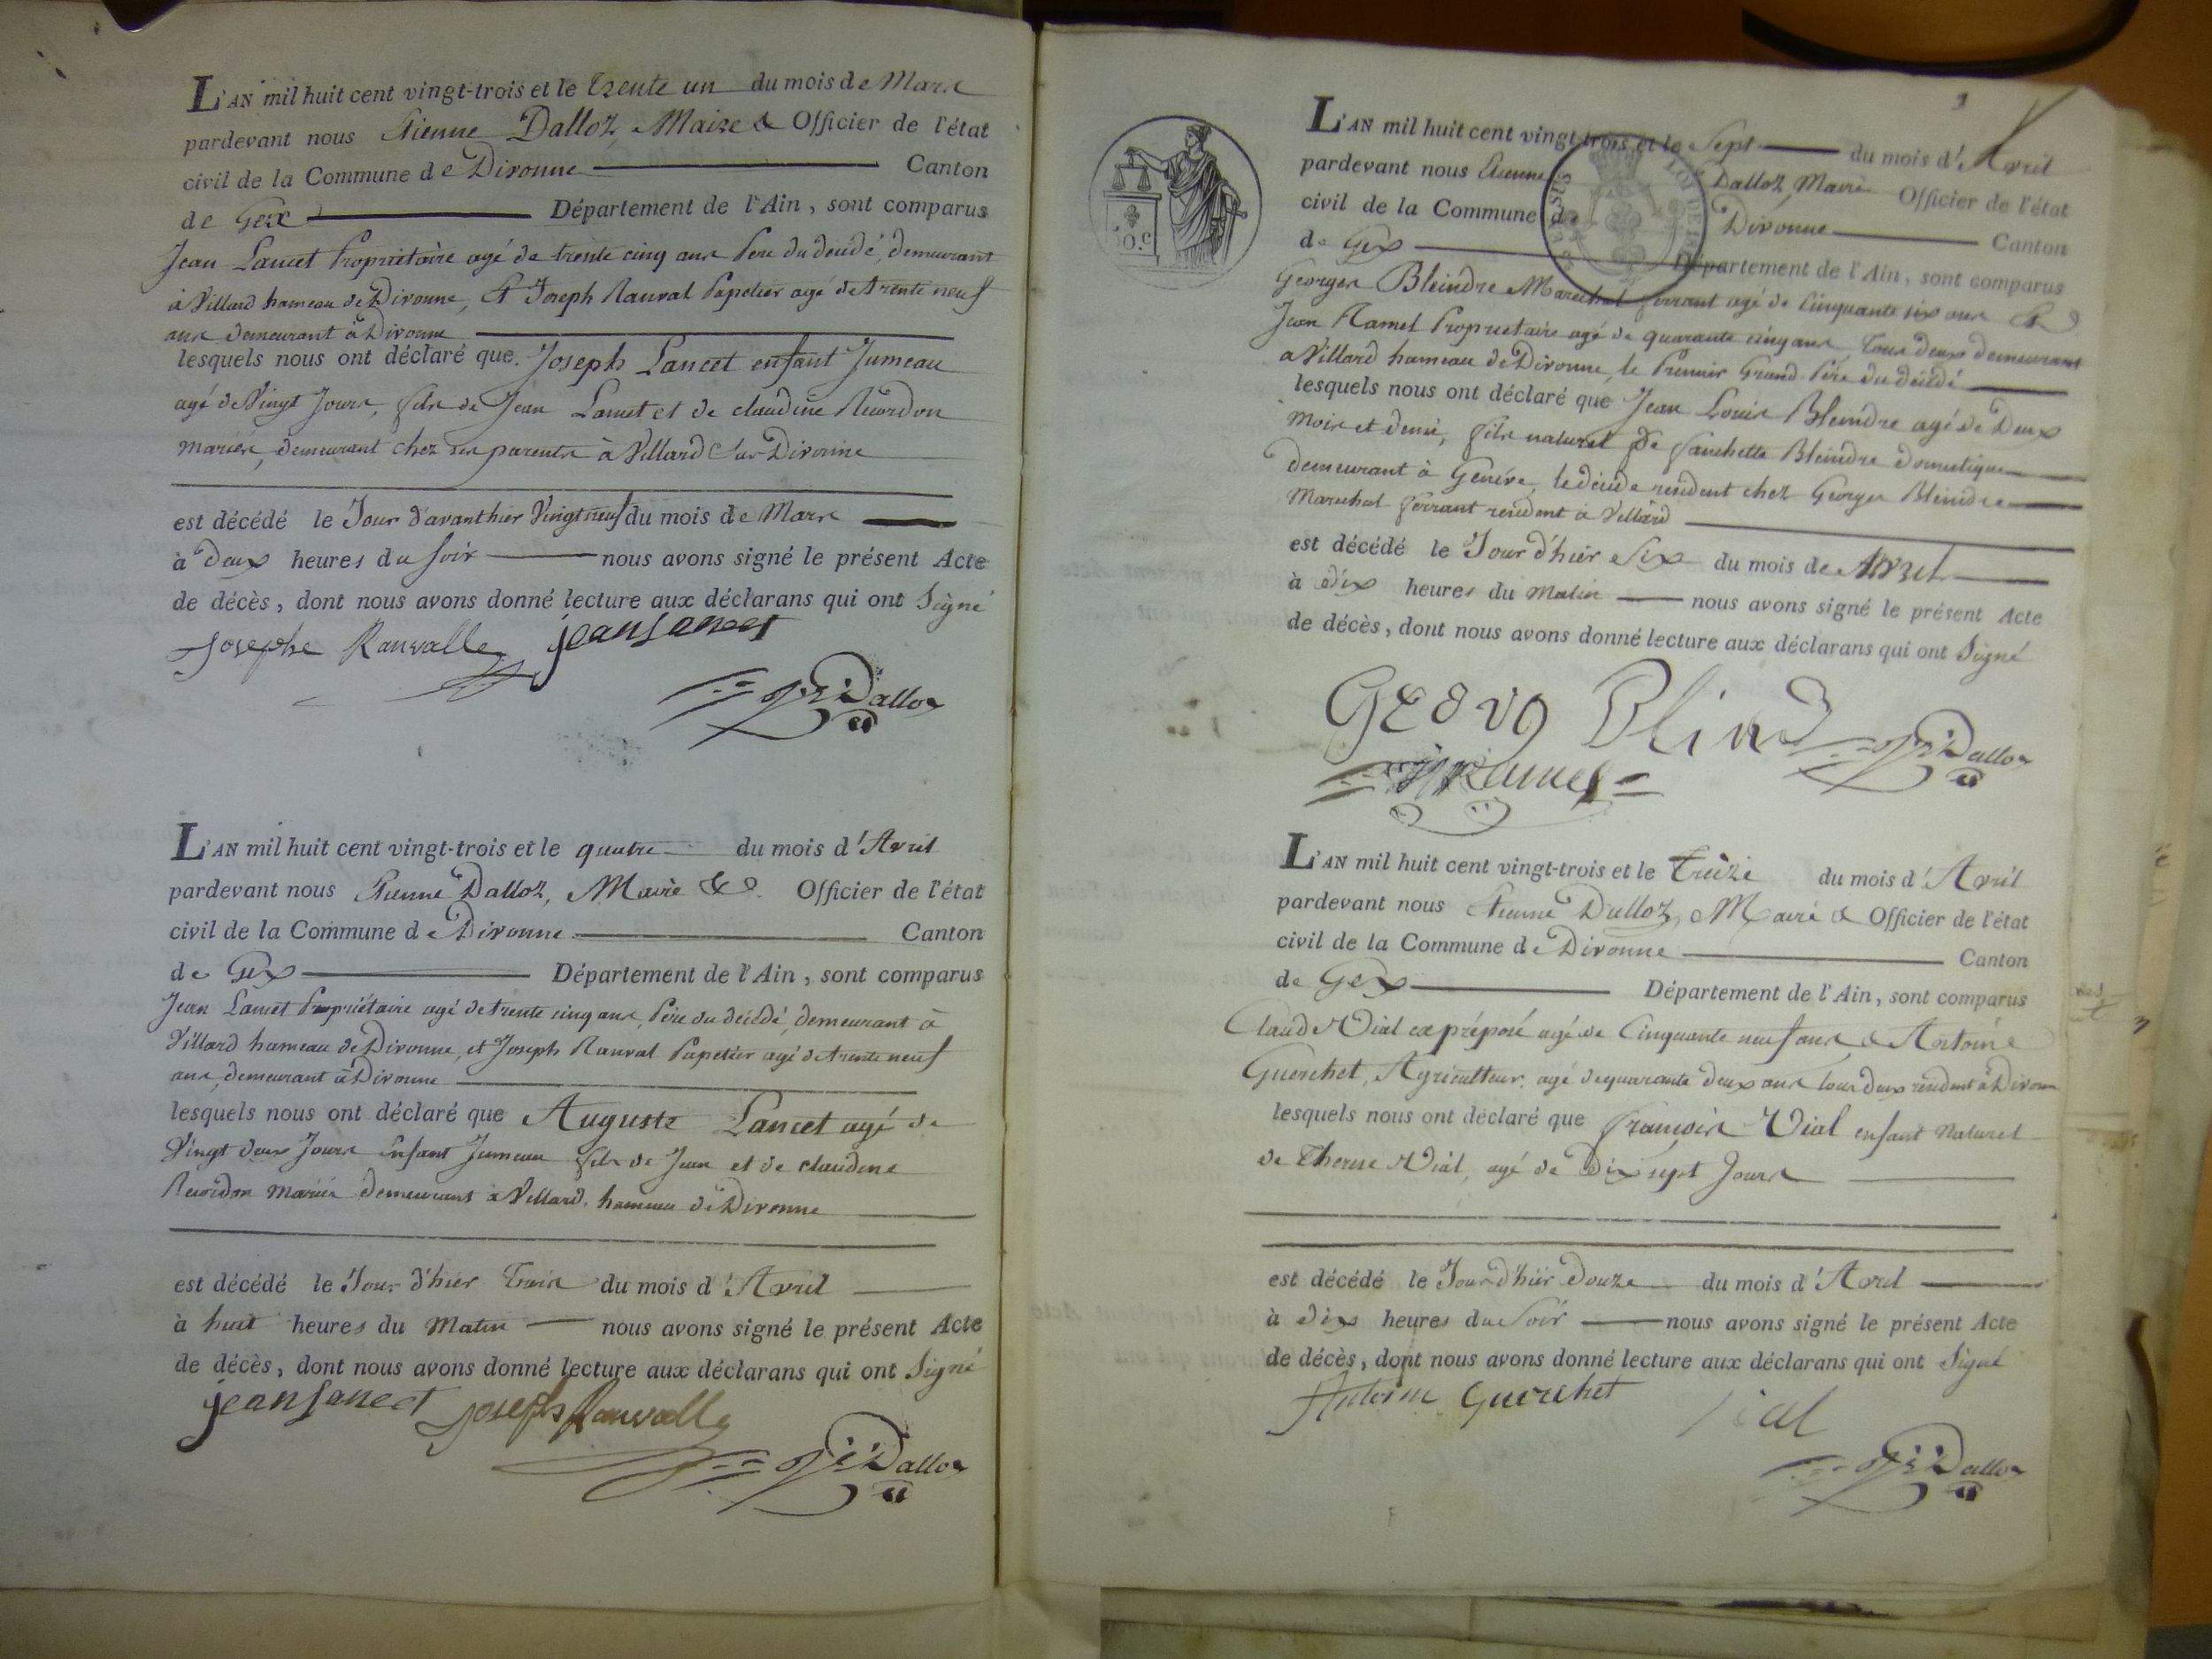 L'AN mil huit cent vingt-trois et le trente un du mois de Mars
pardevant nous Etienne Dalloz, Maire & Officier de l'état
civil de la Commune de Divonne Canton
de Gex Département de l'Ain, sont comparus
Jean Lancet Propriétaire agé de trente cinq ans Pere du décédé, demeurant
à Villard hameau de Divonne, et Joseph Rauval Papetier agé de trente neuf
ans demeurant à Divonne
lesquels nous ont déclaré que Joseph Lancet enfant Jumeau
agé de Vingt Jours, fils de Jean Lancet et de claudine Recordon
mariés, demeurant chez ses parents à Villard sur Divonne
est décédé le Jour d'avant hier Vingt neuf du mois de Mars
à Deux heures du soir nous avons signé le présent Acte
de décès, dont nous avons donné lecture aux déclarans qui ont Signé
Josephe Rauvalle jean lancet
Dalloz
L'AN mil huit cent vingt-trois et le quatre du mois d'Avril
pardevant nous Etienne Dalloz, Maire & Officier de l'état
civil de la Commune de Divonne Canton
de Gex Département de l'Ain, sont comparus
Jean Lancet Propriétaire agé de trente cinq ans, Père du décédé, demeurant à
Villard hameau de Divonne, et Joseph Rauval Papetier agé de trente neuf
ans, demeurant à Divonne
lesquels nous ont déclaré que Auguste Lancet agé de
Vingt deux Jours Enfant Jumeau fils de Jean et de claudine
Recordon mariés demeurant à Villard, hameau de Divonne
est décédé le Jour d'hier Trois du mois d'Avril
à huit heures du Matin nous avons signé le présent Acte
de décès, dont nous avons donné lecture aux déclarans qui ont Signé
jean lancet joseph Rauvalle
Dalloz
3
L'AN mil huit cent vingt-trois et le Sept du mois d'Avril
pardevant nous Etienne Dalloz, Maire Officier de l'état
civil de la Commune de Divonne Canton
de Gex Département de l'Ain, sont comparus
Georges Bleindre Marechal ferrant agé de Cinquante six ans &
Jean Ramel Propriétaire agé de quarante cinq ans, tous deux demeurans
a Villard hameau de Divonne, le Premier Grand-Père du décédé
lesquels nous ont déclaré que Jean Louis Bleindre agé de Deux
Mois et demi, fils naturel de fanchette Bleindre domestique
demeurant à Genève, le décédé résident chez Georges Bleindre
Marechal ferrant résident à Villard
est décédé le Jour d'hier Six du mois de Avril
à Dix heures du Matin nous avons signé le présent Acte
de décès, dont nous avons donné lecture aux déclarans qui ont Signé
Georg Blind
Dalloz
Ramel
L'AN mil huit cent vingt-trois et le Treize du mois d'Avril
pardevant nous Etienne Dalloz, Maire & Officier de l'état
civil de la Commune de Divonne Canton
de Gex Département de l'Ain, sont comparus
Claude Vial ex préposé agé de Cinquante neuf ans, & Antoine
Guerchet, Agriculteur, agé de quarante deux ans tous deux résident à Divonne
lesquels nous ont déclaré que François Vial enfant Naturel
de Therese Vial, agé de Dix sept Jours
est décédé le Jour d'hier Douze du mois d'Avril
à Dix heures du Soir nous avons signé le présent Acte
de décès, dont nous avons donné lecture aux déclarans qui ont Signé
Antoine Guerchet Vial
Dalloz